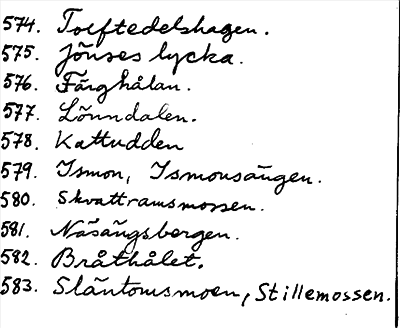 574. Toeftedelshagen.
575. Jönses lycka.
576. Färghålan.
577. Lönndalen.
578. Kattudden
579. Ismon, Ismonsängen.
580. Skvattramsmossen.
581. Näsängsbergen.
582. Bråthålet.
583. Släntomsmoen, Stillemossen.